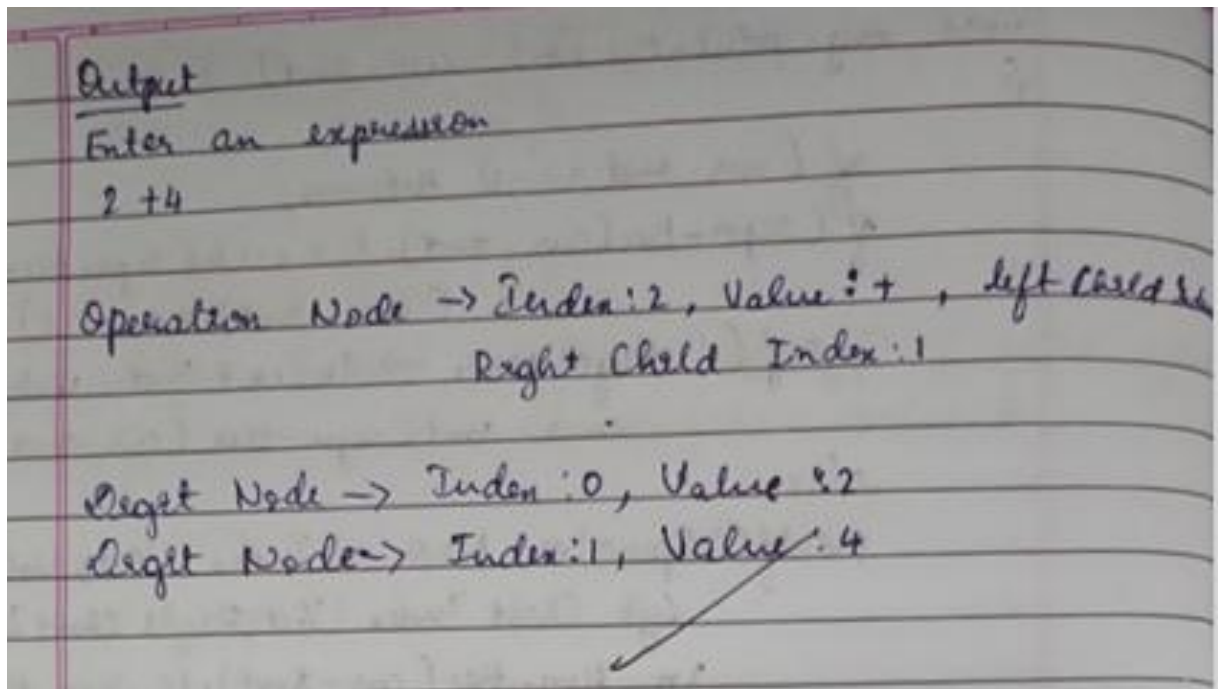 Output
Enter an expression
2 +4
Operation Node -> Index:2, Value:+, left Child
Right Child Index:1
Digit Node -> Index:0, Value:2
Digit Node-> Index:1, Value:4